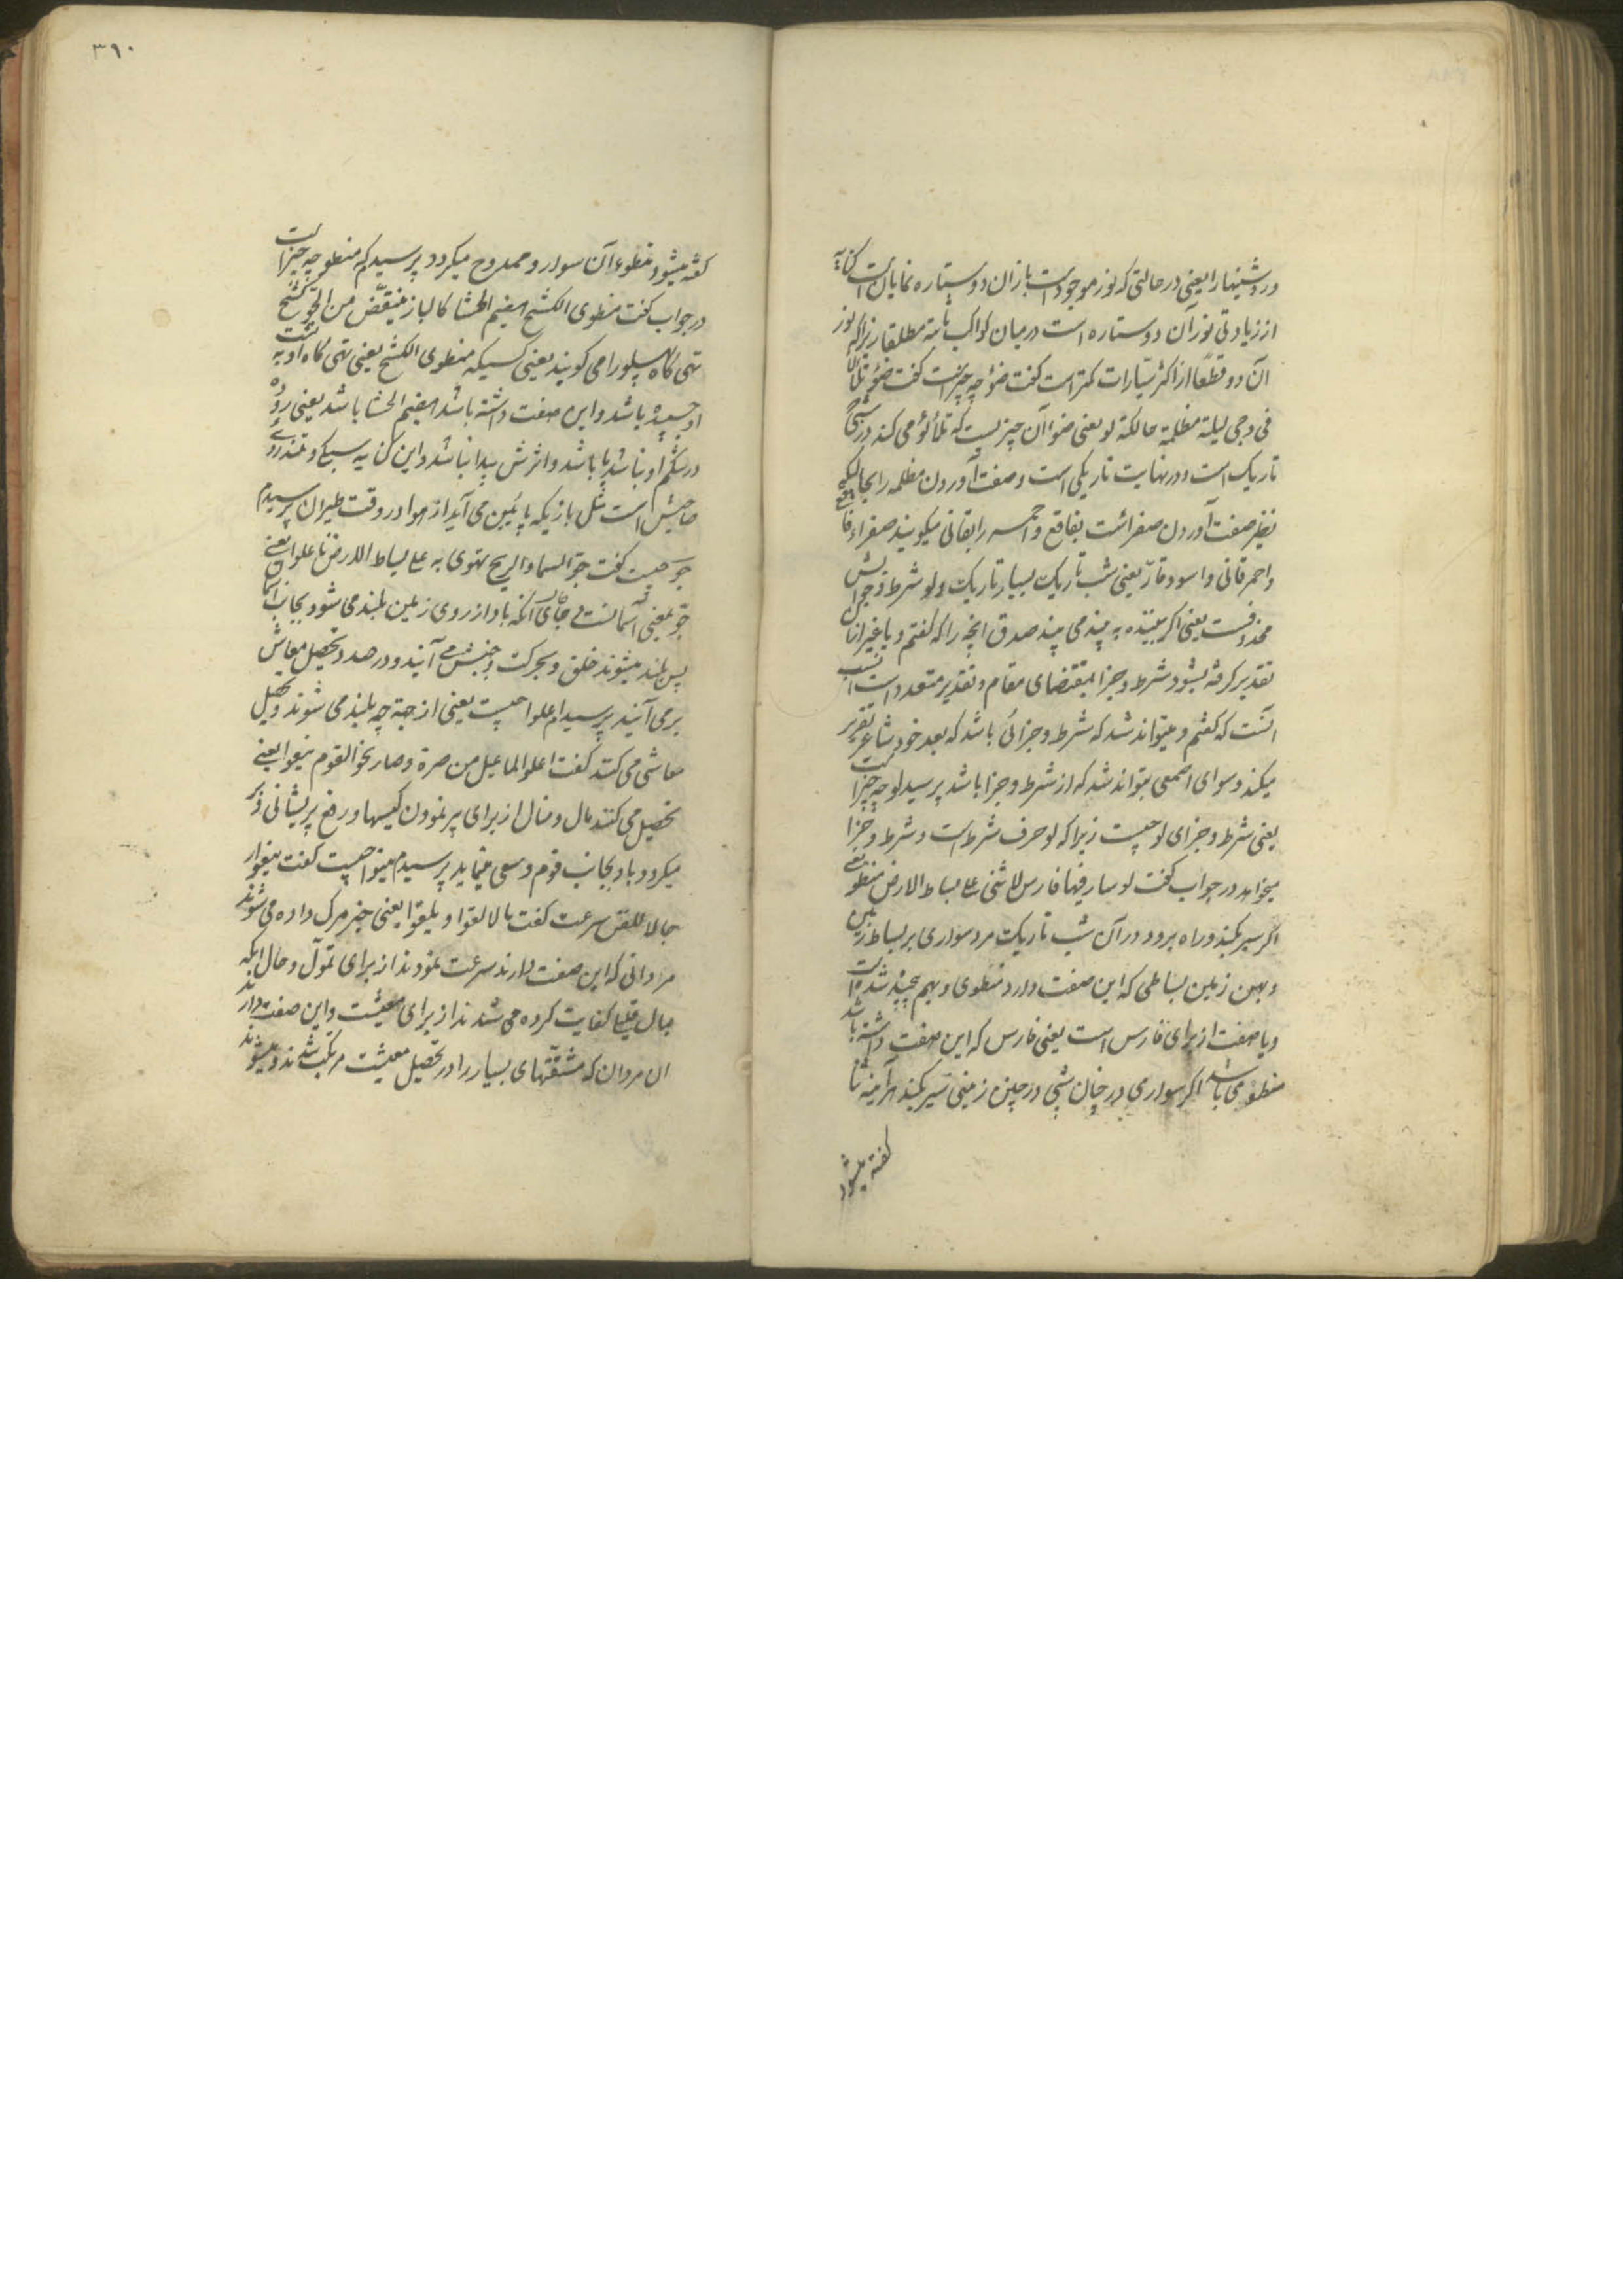 وروشنیها را یعنی در حالتی که نور موجود است باز ان دو ستاره نمایان است کنایة
از زیادتی نور آن دو ستاره است درمیان کواکب ثابته مطلقا زیرا که نور
آن دو قطعًا از اکثر سیارات کمتر است گفت ضوٴ چه چیز است گفت ضوٴ تلألأ
فی دجی لیلة مظلمة حالکة لو یعنی ضوٴ آن چیزیست که تلألؤ می کند در شبی
تاریک است و در نهایت تاریکی است و صفت آوردن مظلمه را بحالکه
نظیر صفت آوردن صفرا است بفاقع و احمر را بقانی میگویند صفراء فاقع
و احمر قانی و اسود یعنی شب تاریک بسیار تاریک و لو شرط و جوابش
محذوفست یعنی اگر بیننده به بیند می بیند صدق انچه را که گفتم و یا غیر ان
تقدیر گرفته بشود شرط و جزا بمقتضای مقام و تقدیر متعدد است انسب
آنست که گفتم و میتواند شد که شرط و جزائی باشد که بعد خود شاعر تقریر
میکند و سوای اصمعی بتواند شد که از شرط و جزا باشد پرسید لو چه چیز است
یعنی شرط و جزای لو چیست زیرا که لو حرف شرط است و شرط و جزا
میخواهد در جواب گفت لو سار فیها فارس لانثنی علی بساط الارض منطو یعنی
اگر سیر بکند و راه برود در آن شب تاریک مرد سواری بر بساط زمین
و پهن زمین بساطی که این صفت دارد منطوی و بهم پیچیده شده است
و یا صفت از برای فارس است یعنی فارس که این صفت داشته باشد
منطو می باشد اگر سواری در چنان شبی در چنین زمینی سیر بکند هر آینه
گفته میشود
۳۹۰
گفته میشود منطوء آن سوار و ممدوح میگردد پرسیدم که منطو چه چیز است
در جواب گفت منطوی الکشح هضیم الحشا کالباز ینقض من الجو کشح
تهی گاه پهلو را می گویند یعنی کسیکه منطوی الکشح یعنی تهی گاه او به پشت
او چسبیده باشد و این صفت داشته باشد هضیم الحشا باشد یعنی روده
در شکم او نباشد یا باشد و اثرش پیدا نباشد و این کنایه سبکی و تندروی
صاحبش است مثل بازیکه پائین می آید از هوا در وقت طیران پرسیدم
جو چیست گفت جو السما و الریح تهوی به علی بساط الارض فاعلوا یعنی
جو بمعنی آسمانست جائی که باد از روی زمین بلند می شود بجانب آسمان
پس بلند میشوند خلق و بحرکت و جنبش می آیند و در صدد تحصیل معاش
بر می آیند پرسیدم اعلوا چیست یعنی از جهة چه بلند می شوند و تحصیل
معاش می کنند گفت اعلوا لما عیل من صبرة و صار نحو القوم ینغوا یعنی
تحصیل می کنند مال و منال از برای پر نمودن کیسها و رفع پریشانی
میگردد باد بجانب قوم و سعی مینماید پرسیدم ینغوا چیست گفت ینغوا
سرعت گفت یعنی خبر مرگ داده می شوند
مردانی که این صفت دارند سرعت نمودند از برای تموّل و حال آنکه
بمال قلیل کفایت کرده می شدند از برای معیشت و این صفت دارند
ان مردان که مشقتهای بسیار را در تحصیل معیشت مرتکب شدند و میشوند